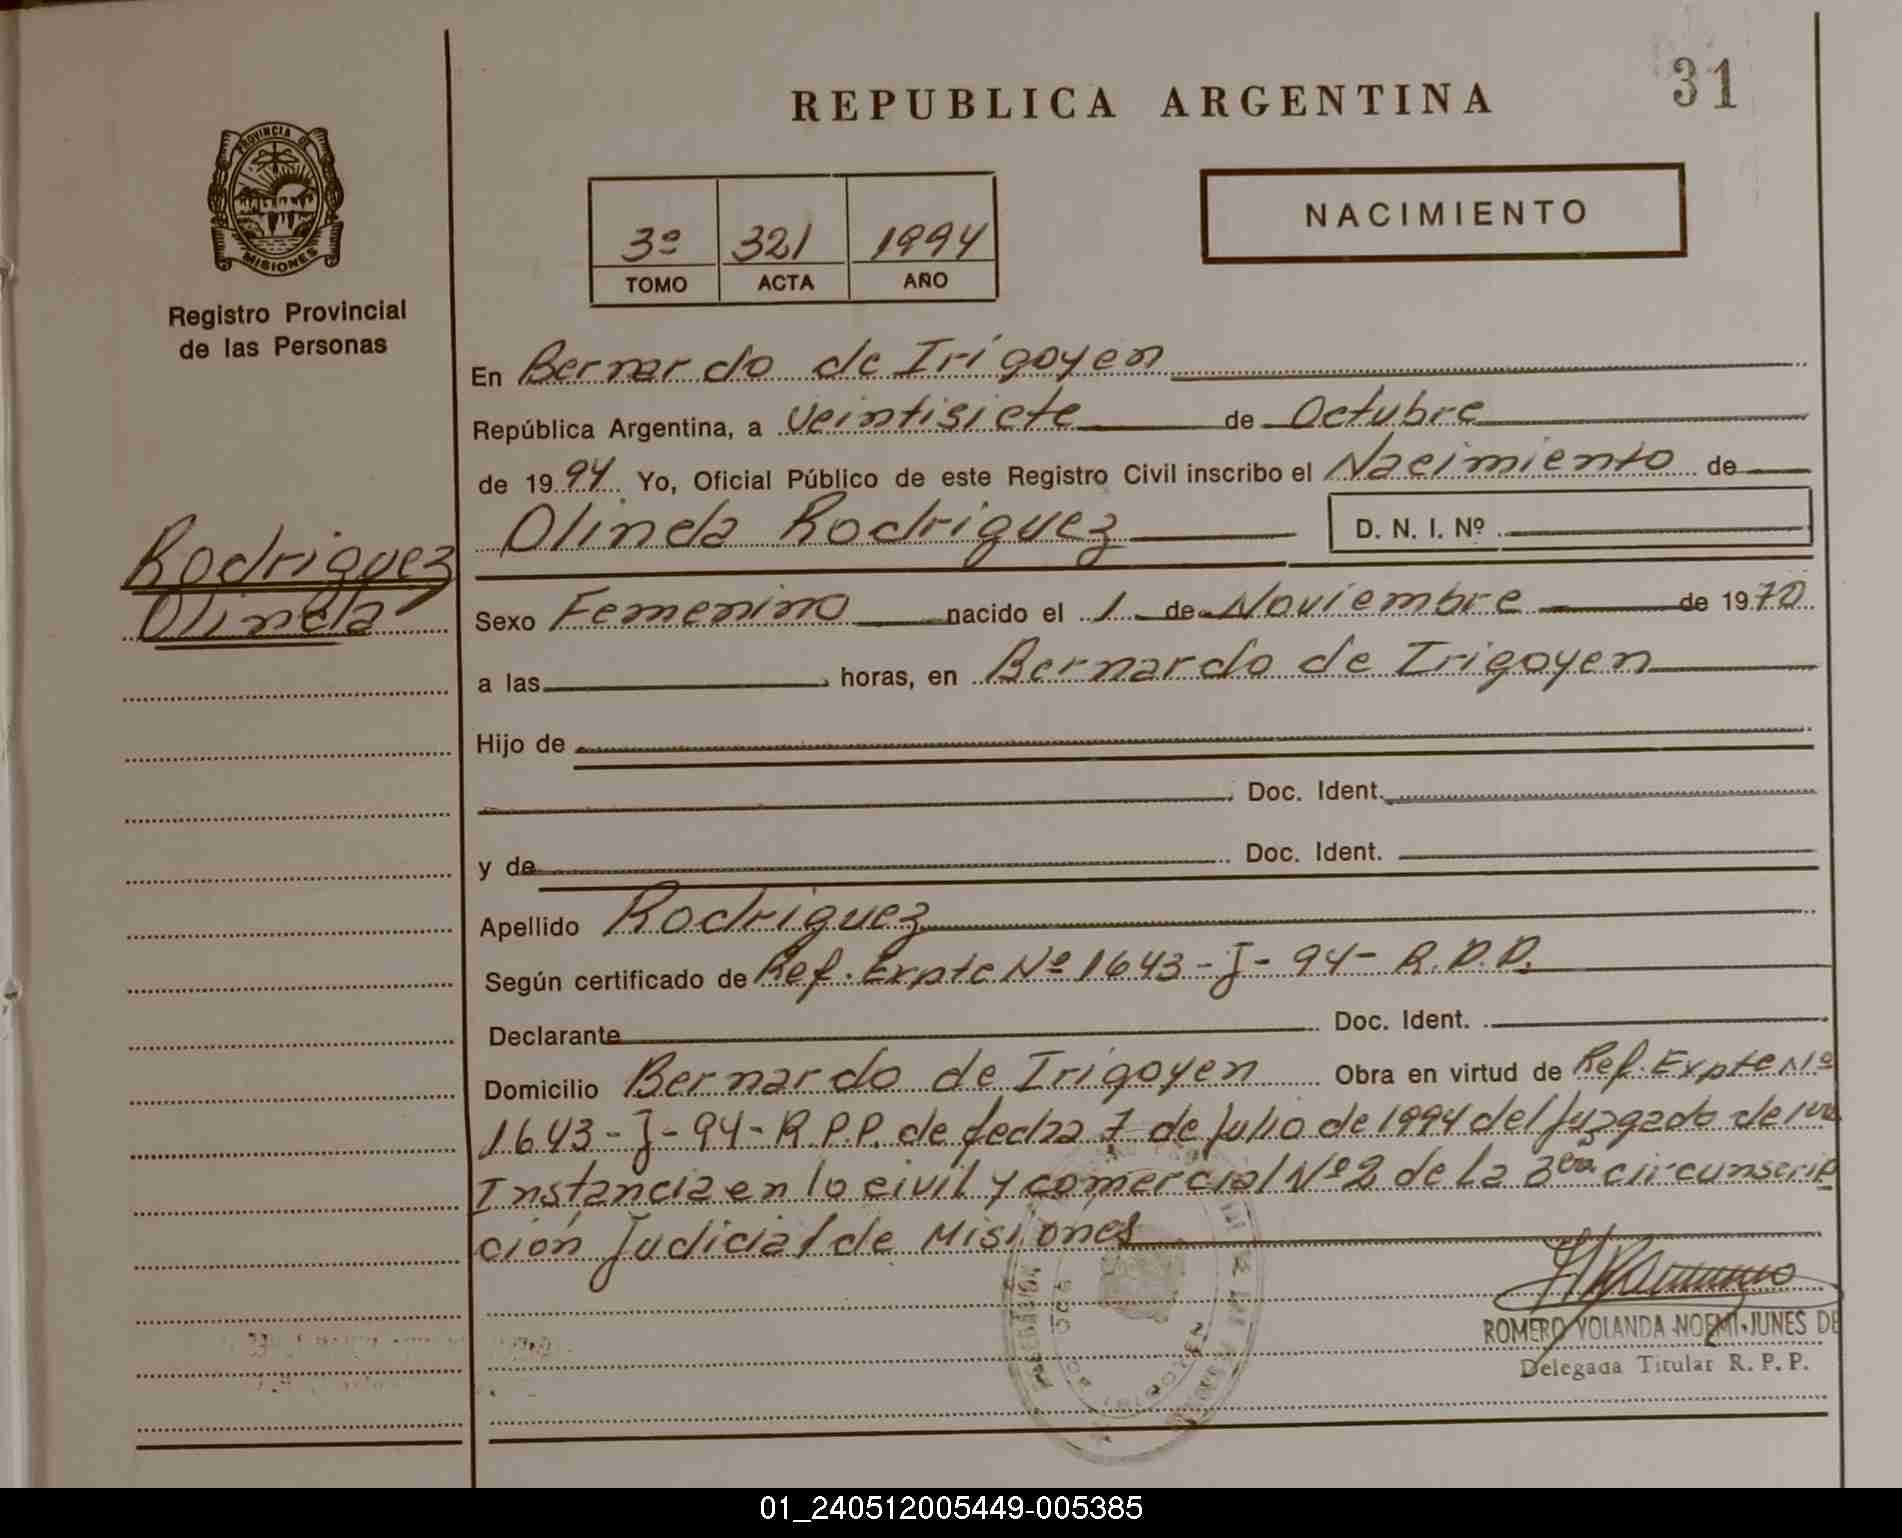 REPUBLICA ARGENTINA
31
PROVINCIA DE
MISIONES
Registro Provincial
de las Personas
3º 321 1994
TOMO ACTA AÑO
NACIMIENTO
En Bernardo de Irigoyen
República Argentina, a veintisiete de Octubre
de 1994 Yo, Oficial Público de este Registro Civil inscribo el Nacimiento de
Olinda Rodriguez D. N. I. Nº
Rodriguez
Olinda
Sexo Femenino nacido el 1 de Noviembre de 1970
a las horas, en Bernardo de Irigoyen
Hijo de
Doc. Ident.
y de Doc. Ident.
Apellido Rodriguez
Según certificado de Ref. Expte Nº 1643-J-94- R.P.P.
Declarante Doc. Ident.
Domicilio Bernardo de Irigoyen Obra en virtud de Ref. Expte Nº
1643-J-94-R.P.P. de fecha 7 de Julio de 1994 del Juzgado de 1ra
Instancia en lo civil y comercial Nº2 de la 3era circunscrip
ción Judicial de Misiones
ROMERO YOLANDA NOEMI JUNES DE
Delegada Titular R. P. P.
DELEGACION
01_240512005449-005385